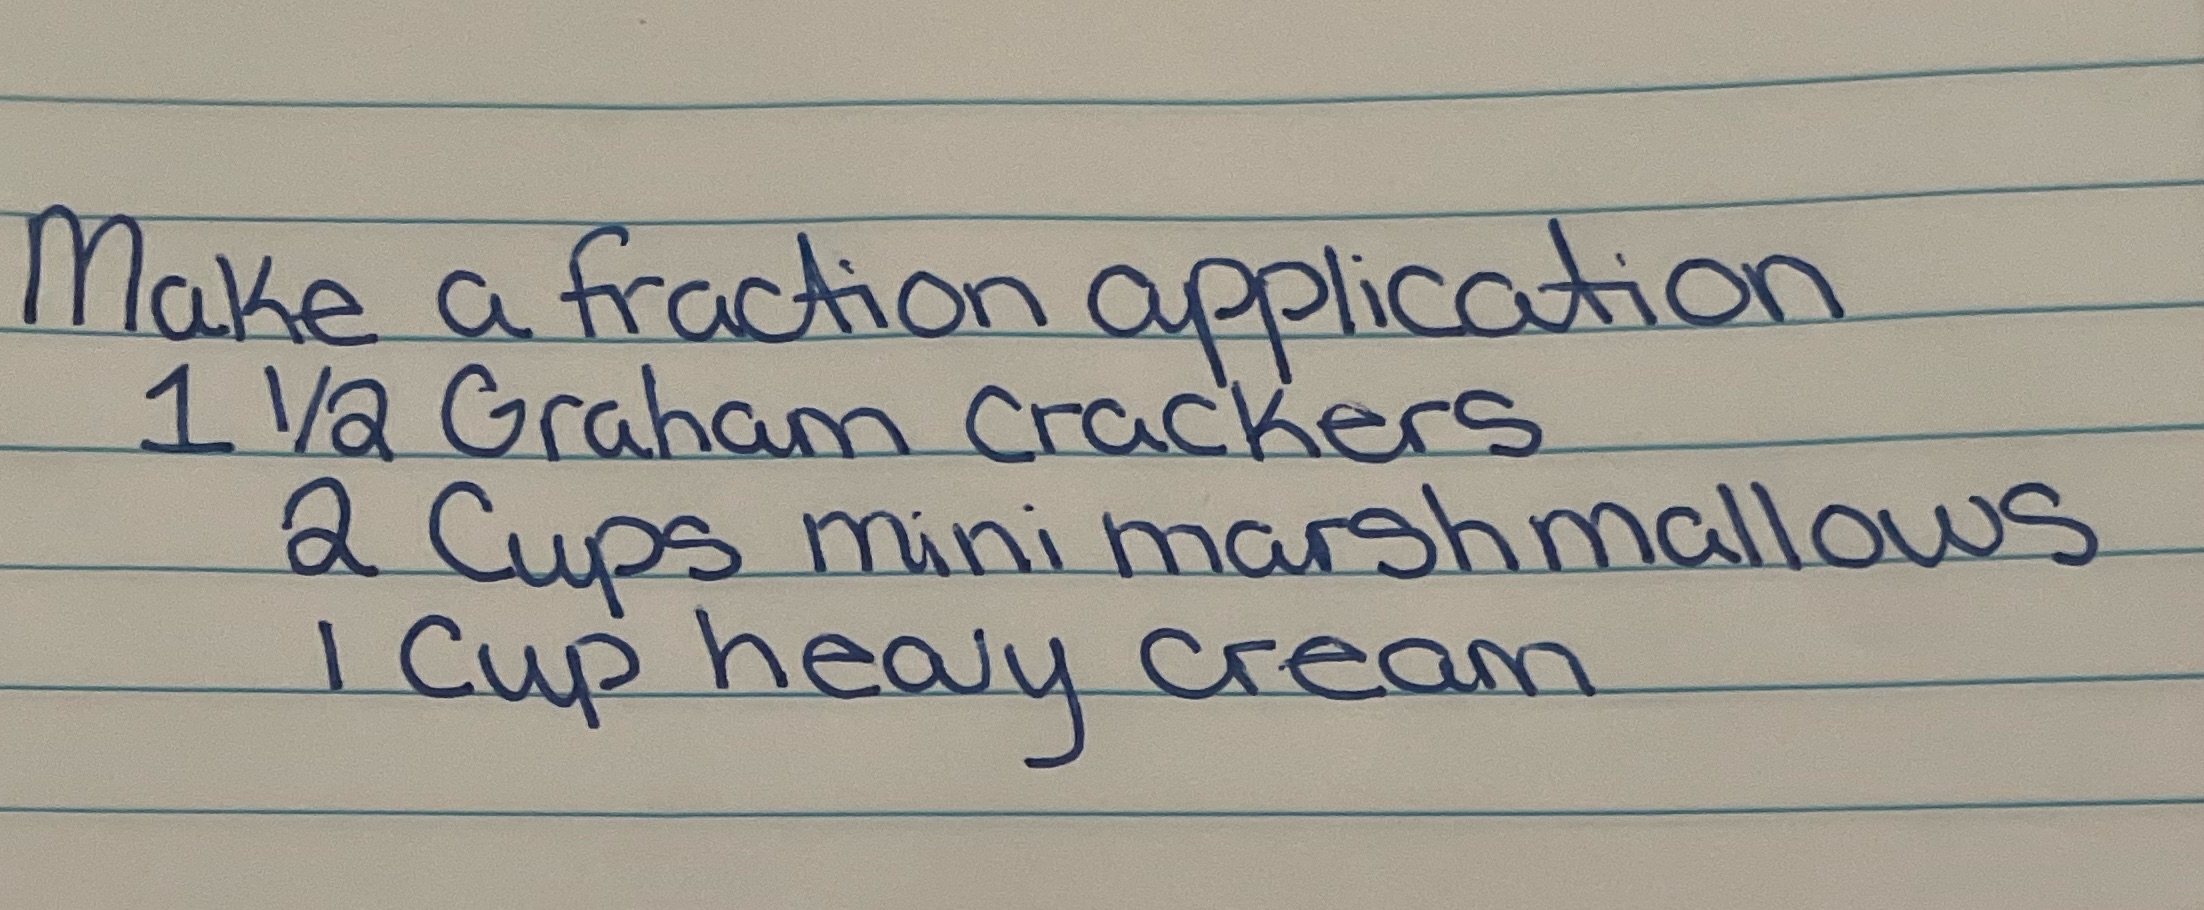 Make a fraction application
1 1/2 Graham crackers
2 Cups mini marshmallows
1 Cup heavy cream